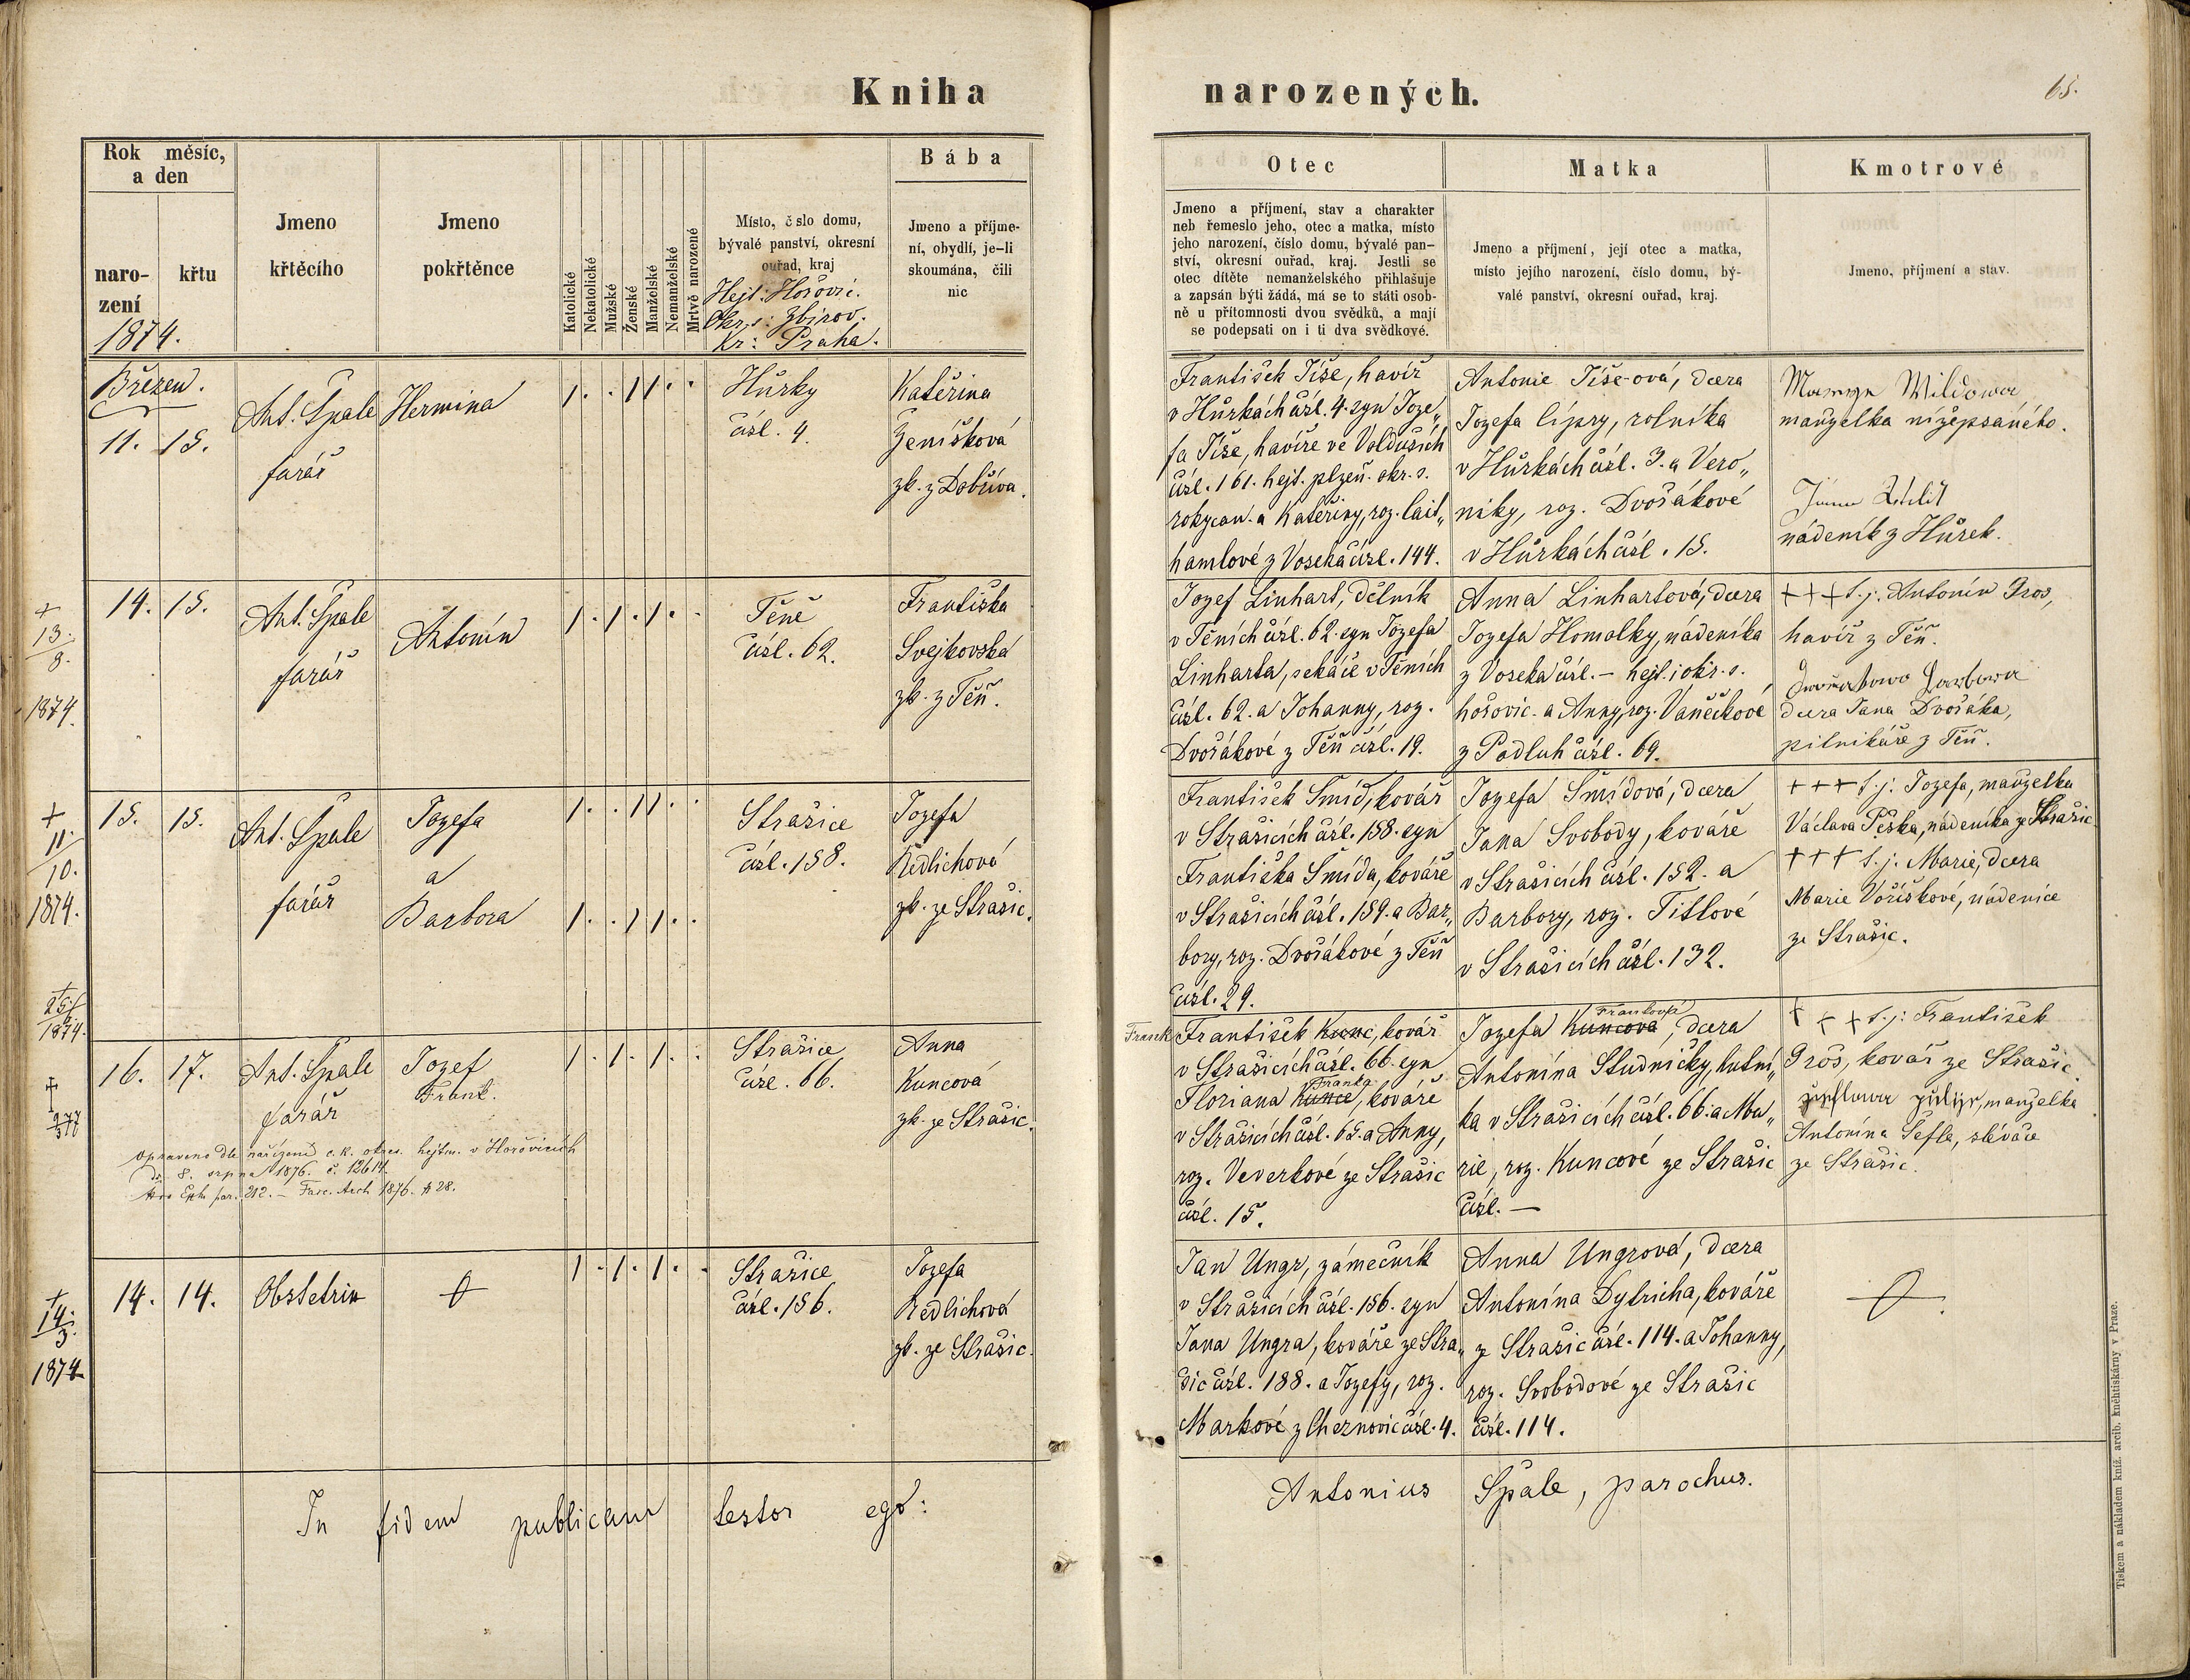 Kniha
narozených.
65.
Rok měsíc,
a den
naro-
zení
křtu
1874.
Jmeno
křtěcího
Jmeno
pokřtěnce
Katolické
Nekatolické
Mužské
Ženské
Manželské
Nemanželské
Mrtvě narozené
Místo, č slo domu,
bývalé panství, okresní
ouřad, kraj
Hejt: Hořovic.
Okr. s: Zbirov.
Kr: Praha.
Bába
Jmeno a příjme-
ní, obydlí, je-li
skoumána, čili
nic
Otec
Jmeno a příjmení, stav a charakter
neb řemeslo jeho, otec a matka, místo
jeho narození, číslo domu, bývalé pan-
ství, okresní ouřad, kraj. Jestli se
otec dítěte nemanželského přihlašuje
a zapsán býti žádá, má se to státi osob-
ně u přítomnosti dvou svědků, a mají
se podepsati on i ti dva svědkové.
Matka
Jmeno a příjmení, její otec a matka,
místo jejího narození, číslo domu, bý-
valé panství, okresní ouřad, kraj.
Kmotrové
Jmeno, příjmení a stav.
Březen.
11. 15.
Ant. Špale
farář
Hermina
1 . . 1 1 . .
Hůrky
čísl. 4.
Kateřina
Ženíšková
zk. z Dobříva.
František Tíše, havíř
v Hůrkách čísl. 4. syn Joze„
fa Tíše, havíře ve Volduších
čísl. 161. hejt. plzeň. okr. s.
rokycan. a Kateřiny, roz. Lait„
hamlové z Voseka čísl. 144.
Antonie Tíše-ová, dcera
Jozefa Cípry, rolníka
v Hůrkách čísl. 3. a Vero„
niky, roz. Dvořákové
v Hůrkách čísl. 15.
Wildowa
manželka nížepsaného.
nádeník z Hůrek.
+
13.
9.
1874.
14. 15.
Ant. Špale
farář
Antonín
1 . 1 . 1 . .
Těně
čísl. 62.
Františka
Svejkovská
zk. z Těň.
Jozef Linhart, dělník
v Těních čísl. 62. syn Jozefa
Linharta, sekáče v Těních
čísl. 62. a Johanny, roz.
Dvořákové z Těň čísl. 19.
Anna Linhartová, dcera
Jozefa Homolky, nádeníka
z Voseka čísl. – hejt. i okr. s.
hořovic. a Anny, roz. Vaněčkové
z Podluh čísl. 69.
+++ t. j. Antonín Gros,
havíř z Těň.
dcera Jana Dvořáka,
pilnikáře z Těň.
+
11.
10.
1874.
+
25/
1874.
15. 15.
Ant. Špale
farář
Jozefa
a
Barbora
1 . . 1 1 . .
1 . . 1 1 . .
Strašice
čísl. 158.
Jozefa
Redlichová
zk. ze Strašic.
František Šmíd, kovář
v Strašicích čísl. 158. syn
Františka Šmída, kováře
v Strašicích čísl. 159. a Bar„
bory, roz. Dvořákové z Těň
čísl. 29.
Jozefa Šmídová, dcera
Jana Svobody, kováře
v Strašicích čísl. 152. a
Barbory, roz. Titlové
v Strašicích čísl. 132.
+++ t. j. Jozefa, manželka
Václava Peška, nádeníka ze Strašic.
+++ t. j. Marie, dcera
Marie Voříškové, nádenice
ze Strašic.
16. 17.
Ant. Špale
farář
Jozef
Frank.
1 . 1 . 1 . .
Strašice
čísl. 66.
Anna
Kuncová
zk. ze Strašic.
opraveno dle nařízení c. k. okres. hejtm. v Hořovicích
dt. 8. srpna 1876. č. 12614.
Frank
František Kunc, kovář
v Strašicích čísl. 66. syn
Franka
Floriana Kunce, kováře
v Strašicích čísl. 65. a Anny,
roz. Veverkové ze Strašic
čísl. 15.
Franková
Jozefa Kuncová, dcera
Antonína Studničky, hutní„
ka v Strašicích čísl. 66. a Ma„
rie, roz. Kuncové ze Strašic
čísl. —
+++ t. j. František
Gros, kovář ze Strašic.
manželka
Antonína Šefla, slévače
ze Strašic.
+
14.
3.
1874.
14. 14.
Obstetrix
1 . 1 . 1 . .
Strašice
čísl. 156.
Jozefa
Redlichová
zk. ze Strašic.
Jan Ungr, zámečník
v Strašicích čísl. 156. syn
Jana Ungra, kováře ze Stra„
šic čísl. 188. a Jozefy, roz.
Markové z Cheznovic čísl. 4.
Anna Ungrová, dcera
Antonína Dytricha, kováře
z Strašic čísl. 114. a Johanny,
roz. Svobodové ze Strašic
čísl. 114.
In fidem publicam testor ego:
Antonius Špale, parochus.
Tiskem a nákladem kníž. arcib. kněhtiskárny v Praze.